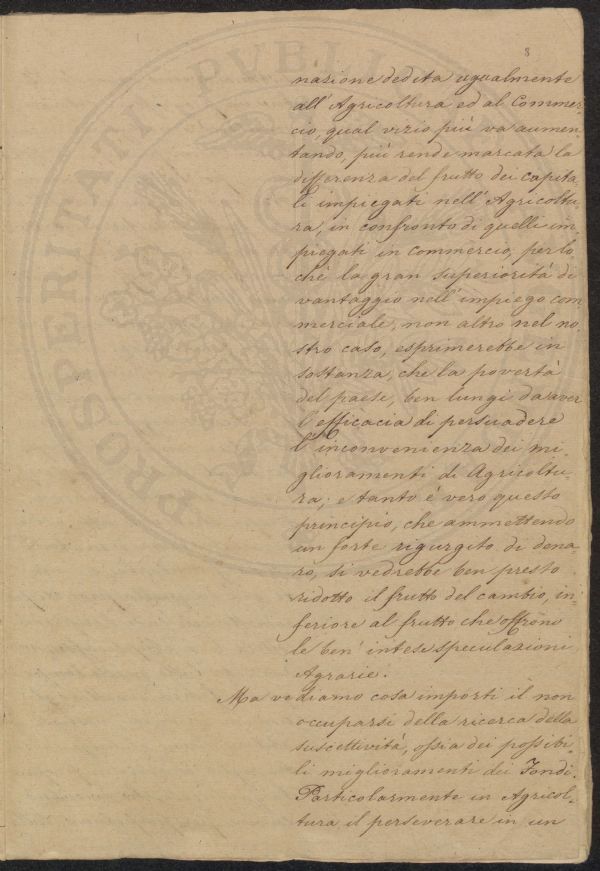 8
PROSPERITATI PVBLI
nazione dedita ugualmente
all'Agricoltura ed al Commer=
cio, qual vizio più va aumen=
tando, più rende marcata la
differenza del frutto dei capita=
li impiegati nell'Agricoltu=
ra, in confronto di quelli im=
piegati in commercio, perlo
chè la gran superiorità di
vantaggio nell'impiego com
merciale, non altro nel no=
stro caso, esprimerebbe in
sostanza, che la povertà
del paese, ben lungi da aver
l'efficacia di persuadere
l'inconvenienza dei mi=
glioramenti di Agricoltu=
ra; e tanto è vero questo
principio, che ammettendo
un forte rigurgito di dena=
ro, si vedrebbe ben presto
ridotto il frutto del cambio, in=
feriore al frutto che offrono
le ben' intese speculazioni
Agrarie.
Ma vediamo cosa importi il non
occuparsi della ricerca della
suscettività, ossia dei possibi=
li miglioramenti dei Fondi.
Particolarmente in Agricol=
tura il perseverare in un